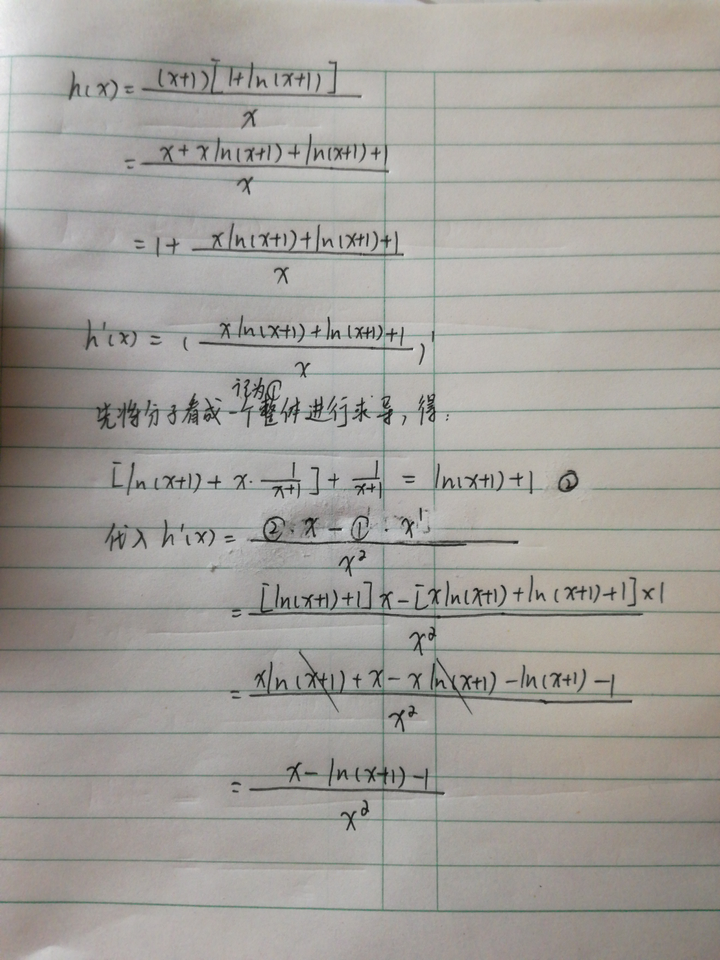 h(x) = (x+1)[1+ln(x+1)] / x
= x+xln(x+1)+ln(x+1)+1 / x
= 1+ xln(x+1)+ln(x+1)+1 / x
h'(x) = ( xln(x+1)+ln(x+1)+1 / x )'
记为①
先将分子看成一个整体进行求导，得：
[ln(x+1)+x·1/(x+1)]+1/(x+1) = ln(x+1)+1 ②
代入h'(x) = ②·x-①·x' / x²
= [ln(x+1)+1]x-[xln(x+1)+ln(x+1)+1]×1 / x²
= xln(x+1)+x-xln(x+1)-ln(x+1)-1 / x²
= x-ln(x+1)-1 / x²